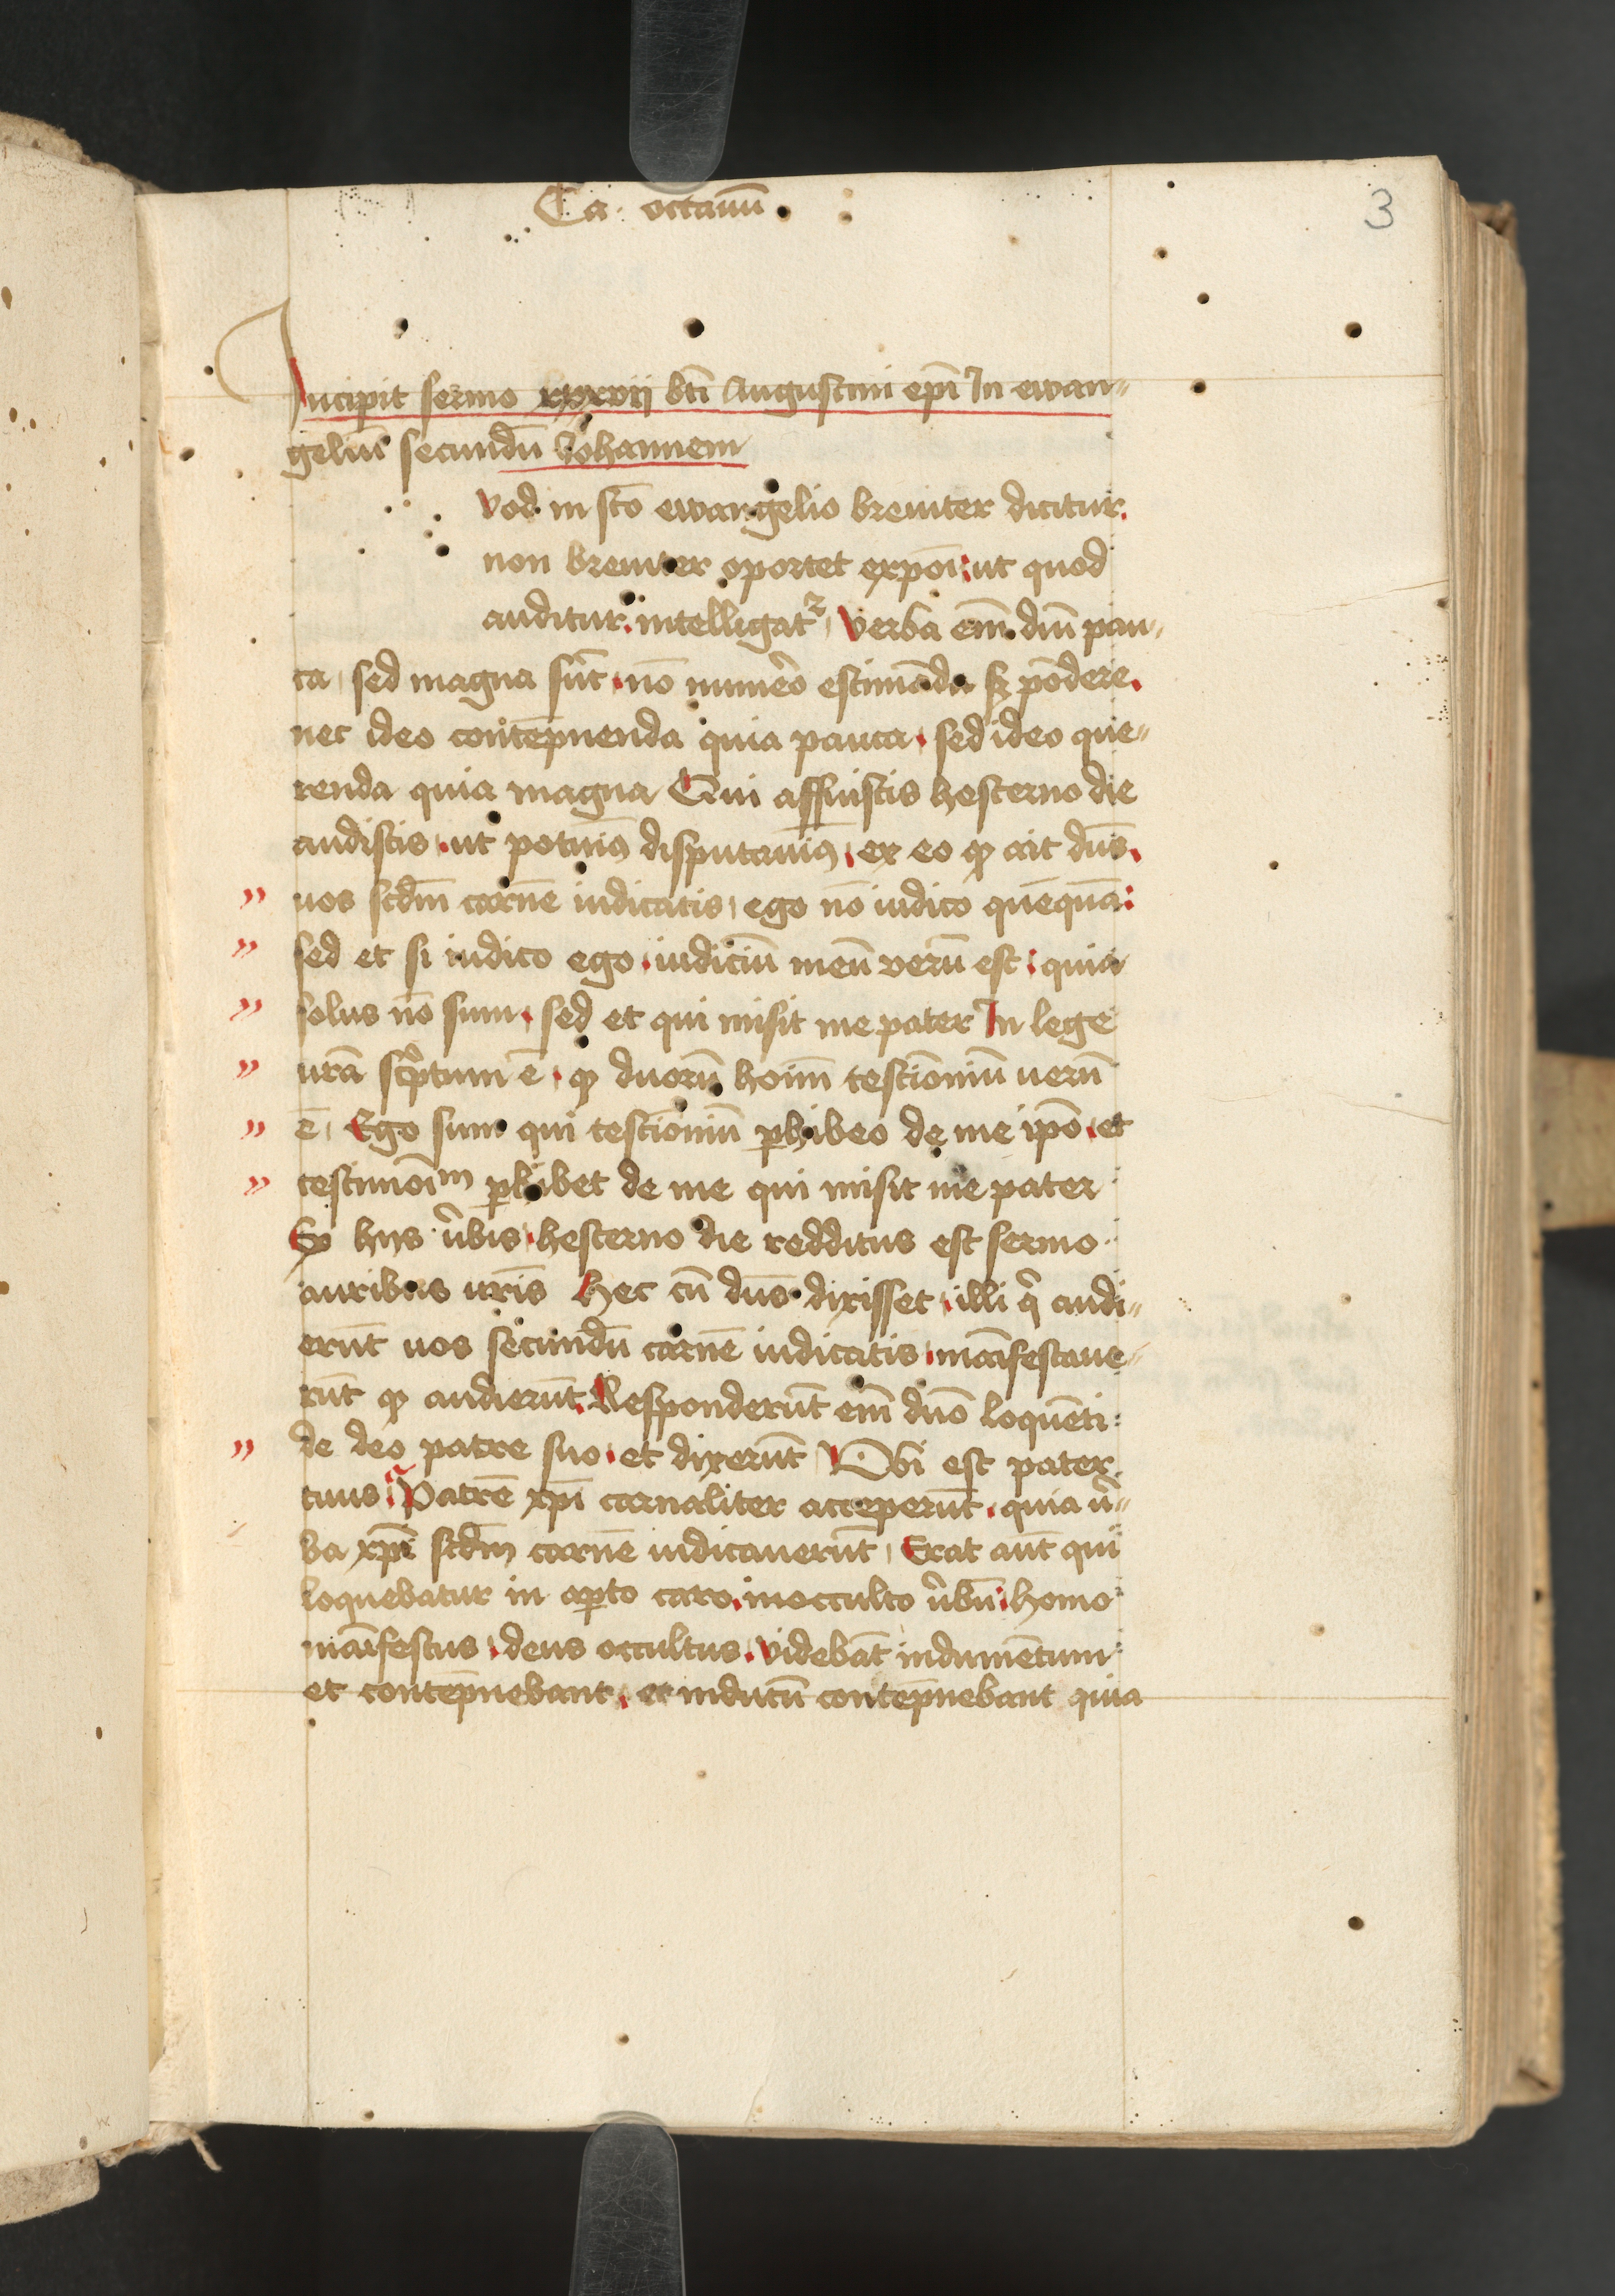 Ca. octauū
3
Incipit sermo xxxvij bti Augustini epī In ewan-
geliū secundū Iohannem
vod in sco ewangelio breuiter dicitur.
non breuiter oportet expōi: ut quod
auditur. intelligatᷣ. Verba em̄ dn̄i pau-
ca, sed magna sūt. nō numēo estimāda sꝫ pōdere.
nec ideo contēpnenda quia pauca. sed ideo que-
renda quia magna Qui affuistis hesterno die
audistis. ut potuimꝰ disputauimꝰ. ex eo qꝫ ait dn̄s.
" uos scdm̄ carnē iudicatis, ego nō iudico quēquā:
" sed et si iudico ego. iudiciū meū verū est: quia
" solus nō sum. sed et qui misit me pater In lege
" urā scͥptum ē. qꝫ duorū hoīm testīoniū uerū
" ē, Ego sum qui testīoniū ꝑhibeo de me ipō. et
" testimoīm ꝑhibet de me qui misit me pater
Ex hijs ūbis. hesterno die redditus est sermo
auribus uris Hec cū dn̄s dixisset. illi q̄ audi-
erūt uos secundū carnē iudicatis. maīfestaue-
rūt qꝫ audierūt. Responderūt em̄ dn̄o loquēti
" de deo patre suo. et dixerūt Vbi est pater
tuus. Patrē xp̄i carnaliter acceperūt. quia ū-
ba xp̄i scdm̄ carnē iudicauerūt, Erat aūt qui
loquebatur in aꝑto caro. in occulto ūbū: homo
maīfestus. deus occultus. videbāt indumētum
et contēpnebant. et indutū contēpnebant quia